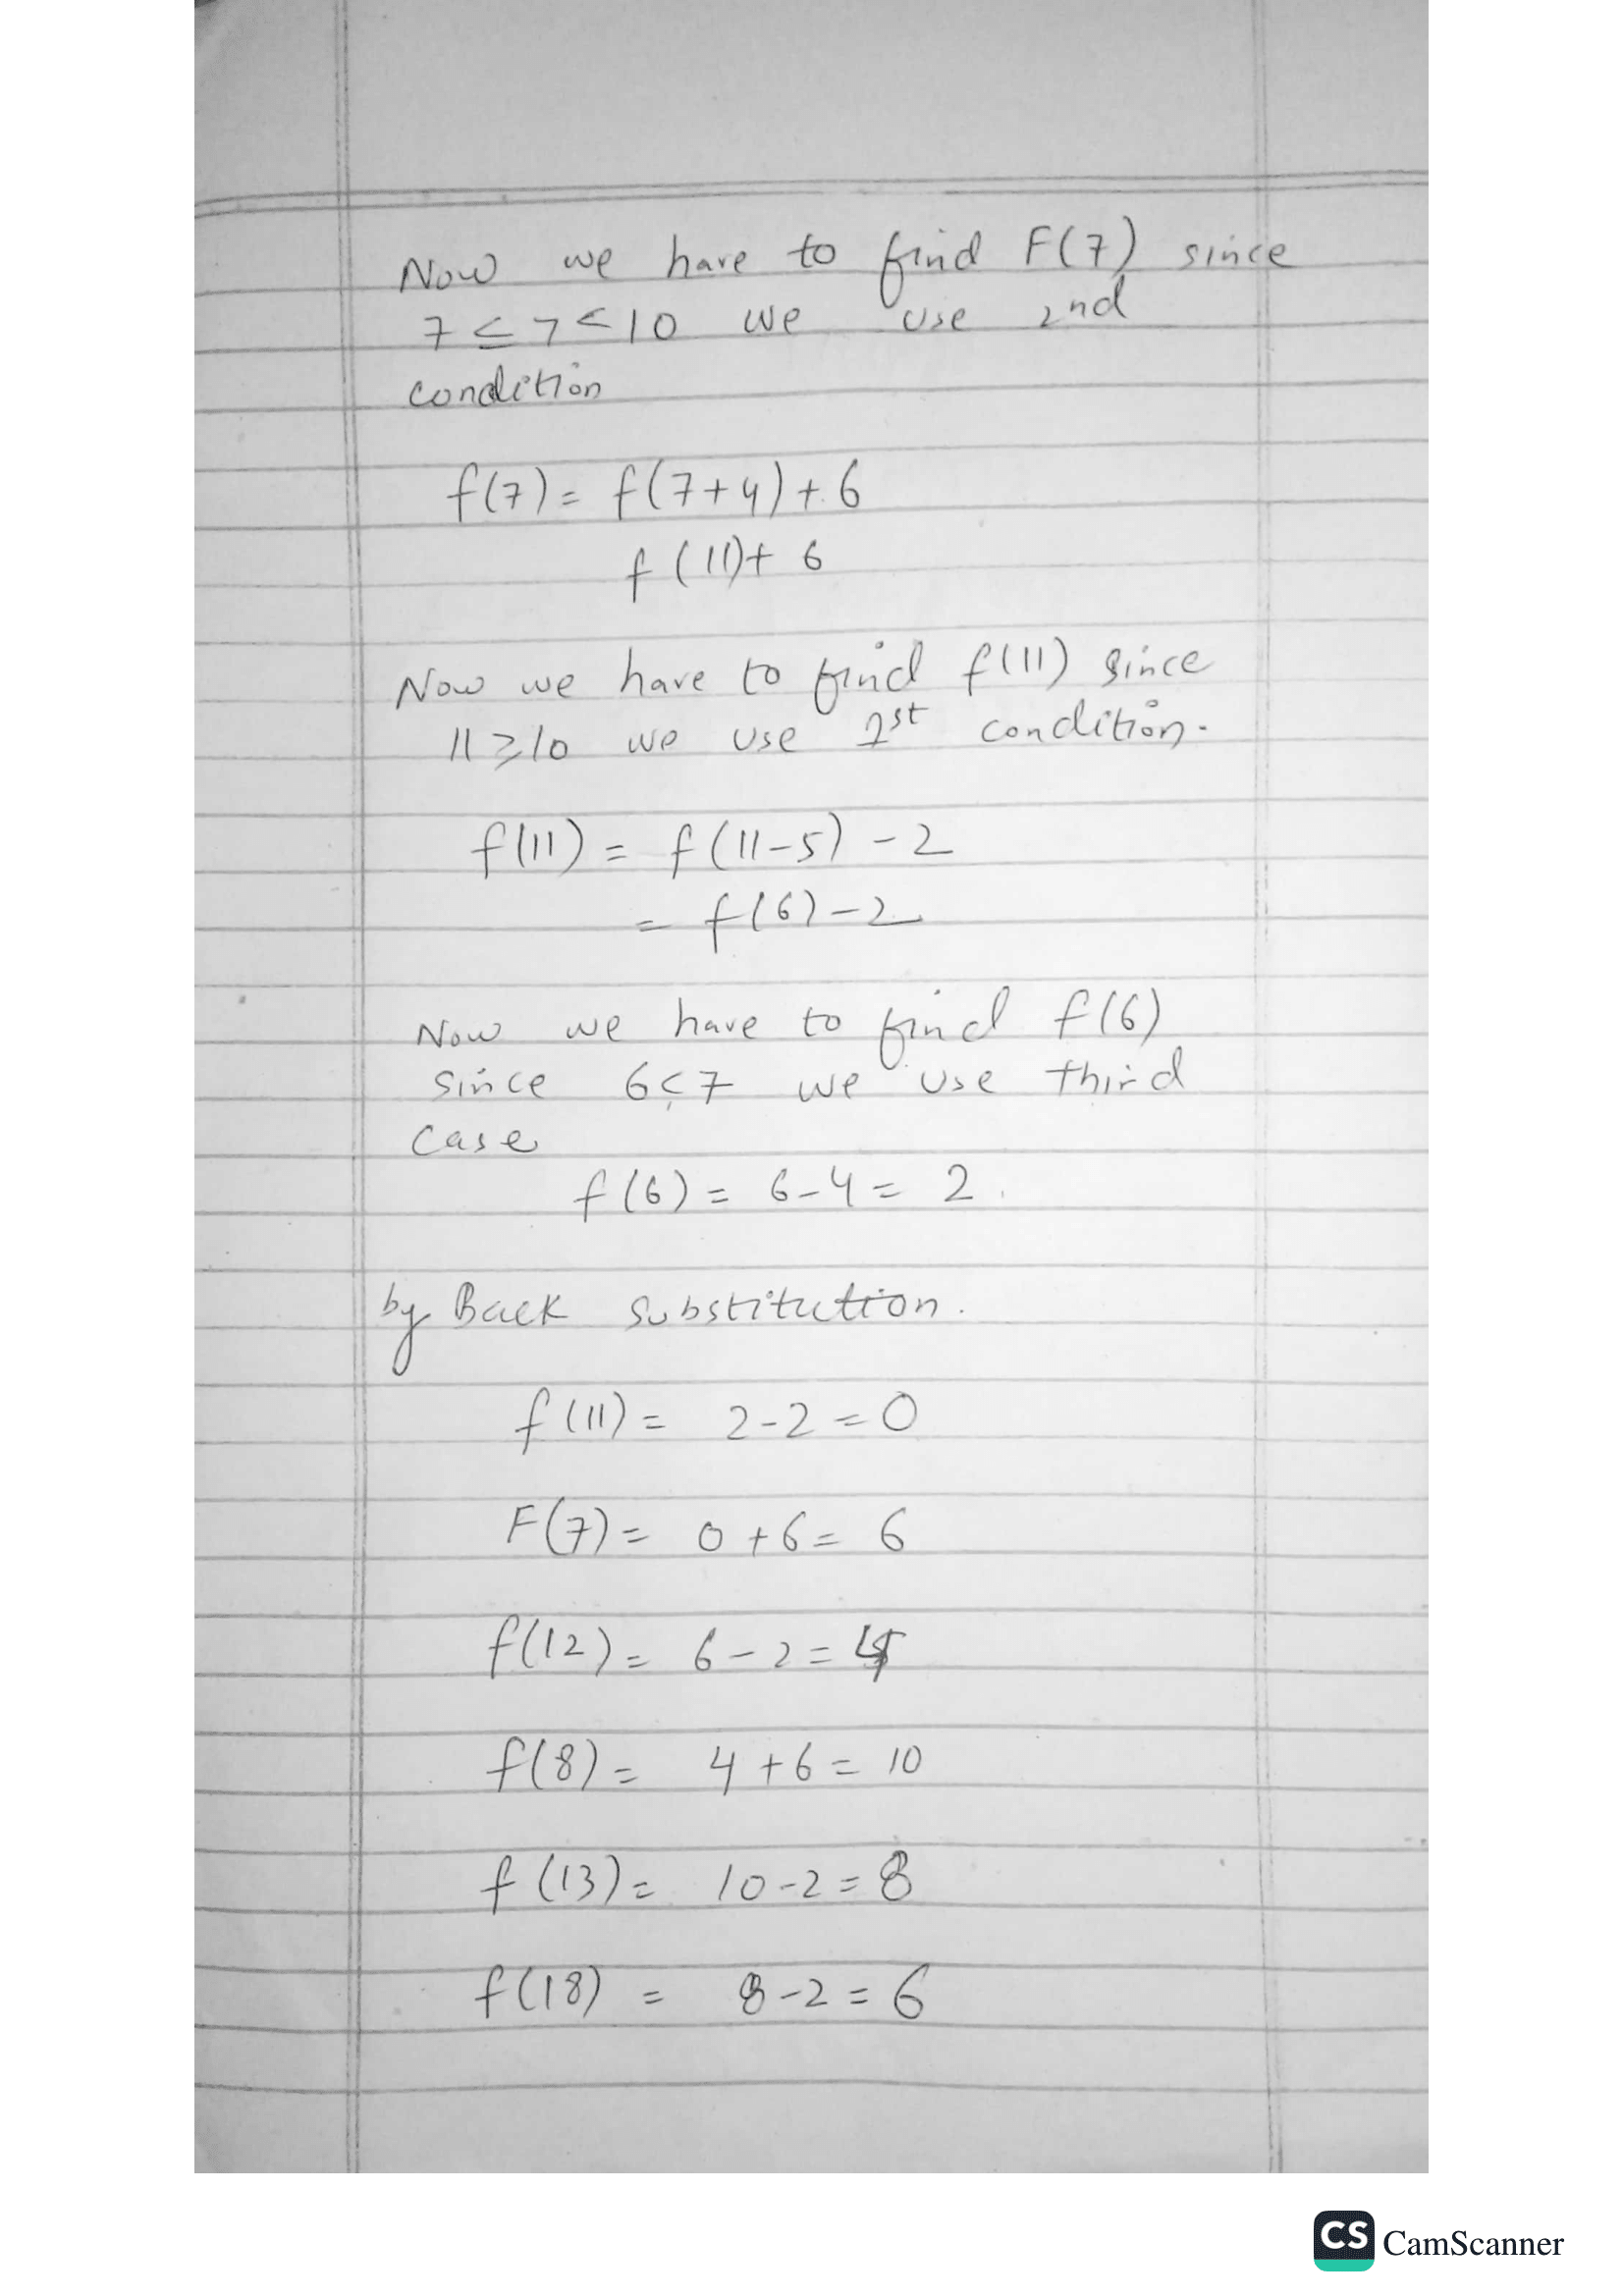 Now we have to find F(7) since
7 ≤ 7 < 10 we use 2nd
condition
f(7) = f(7+4) + 6
f(11) + 6
Now we have to find f(11) since
11 ≥ 10 we use 1st condition.
f(11) = f(11-5) - 2
= f(6) - 2
Now we have to find f(6)
since 6 < 7 we use third
case
f(6) = 6 - 4 = 2.
by Back substitution.
f(11) = 2 - 2 = 0
F(7) = 0 + 6 = 6
f(12) = 6 - 2 = 4
f(8) = 4 + 6 = 10
f(13) = 10 - 2 = 8
f(18) = 8 - 2 = 6
CS CamScanner